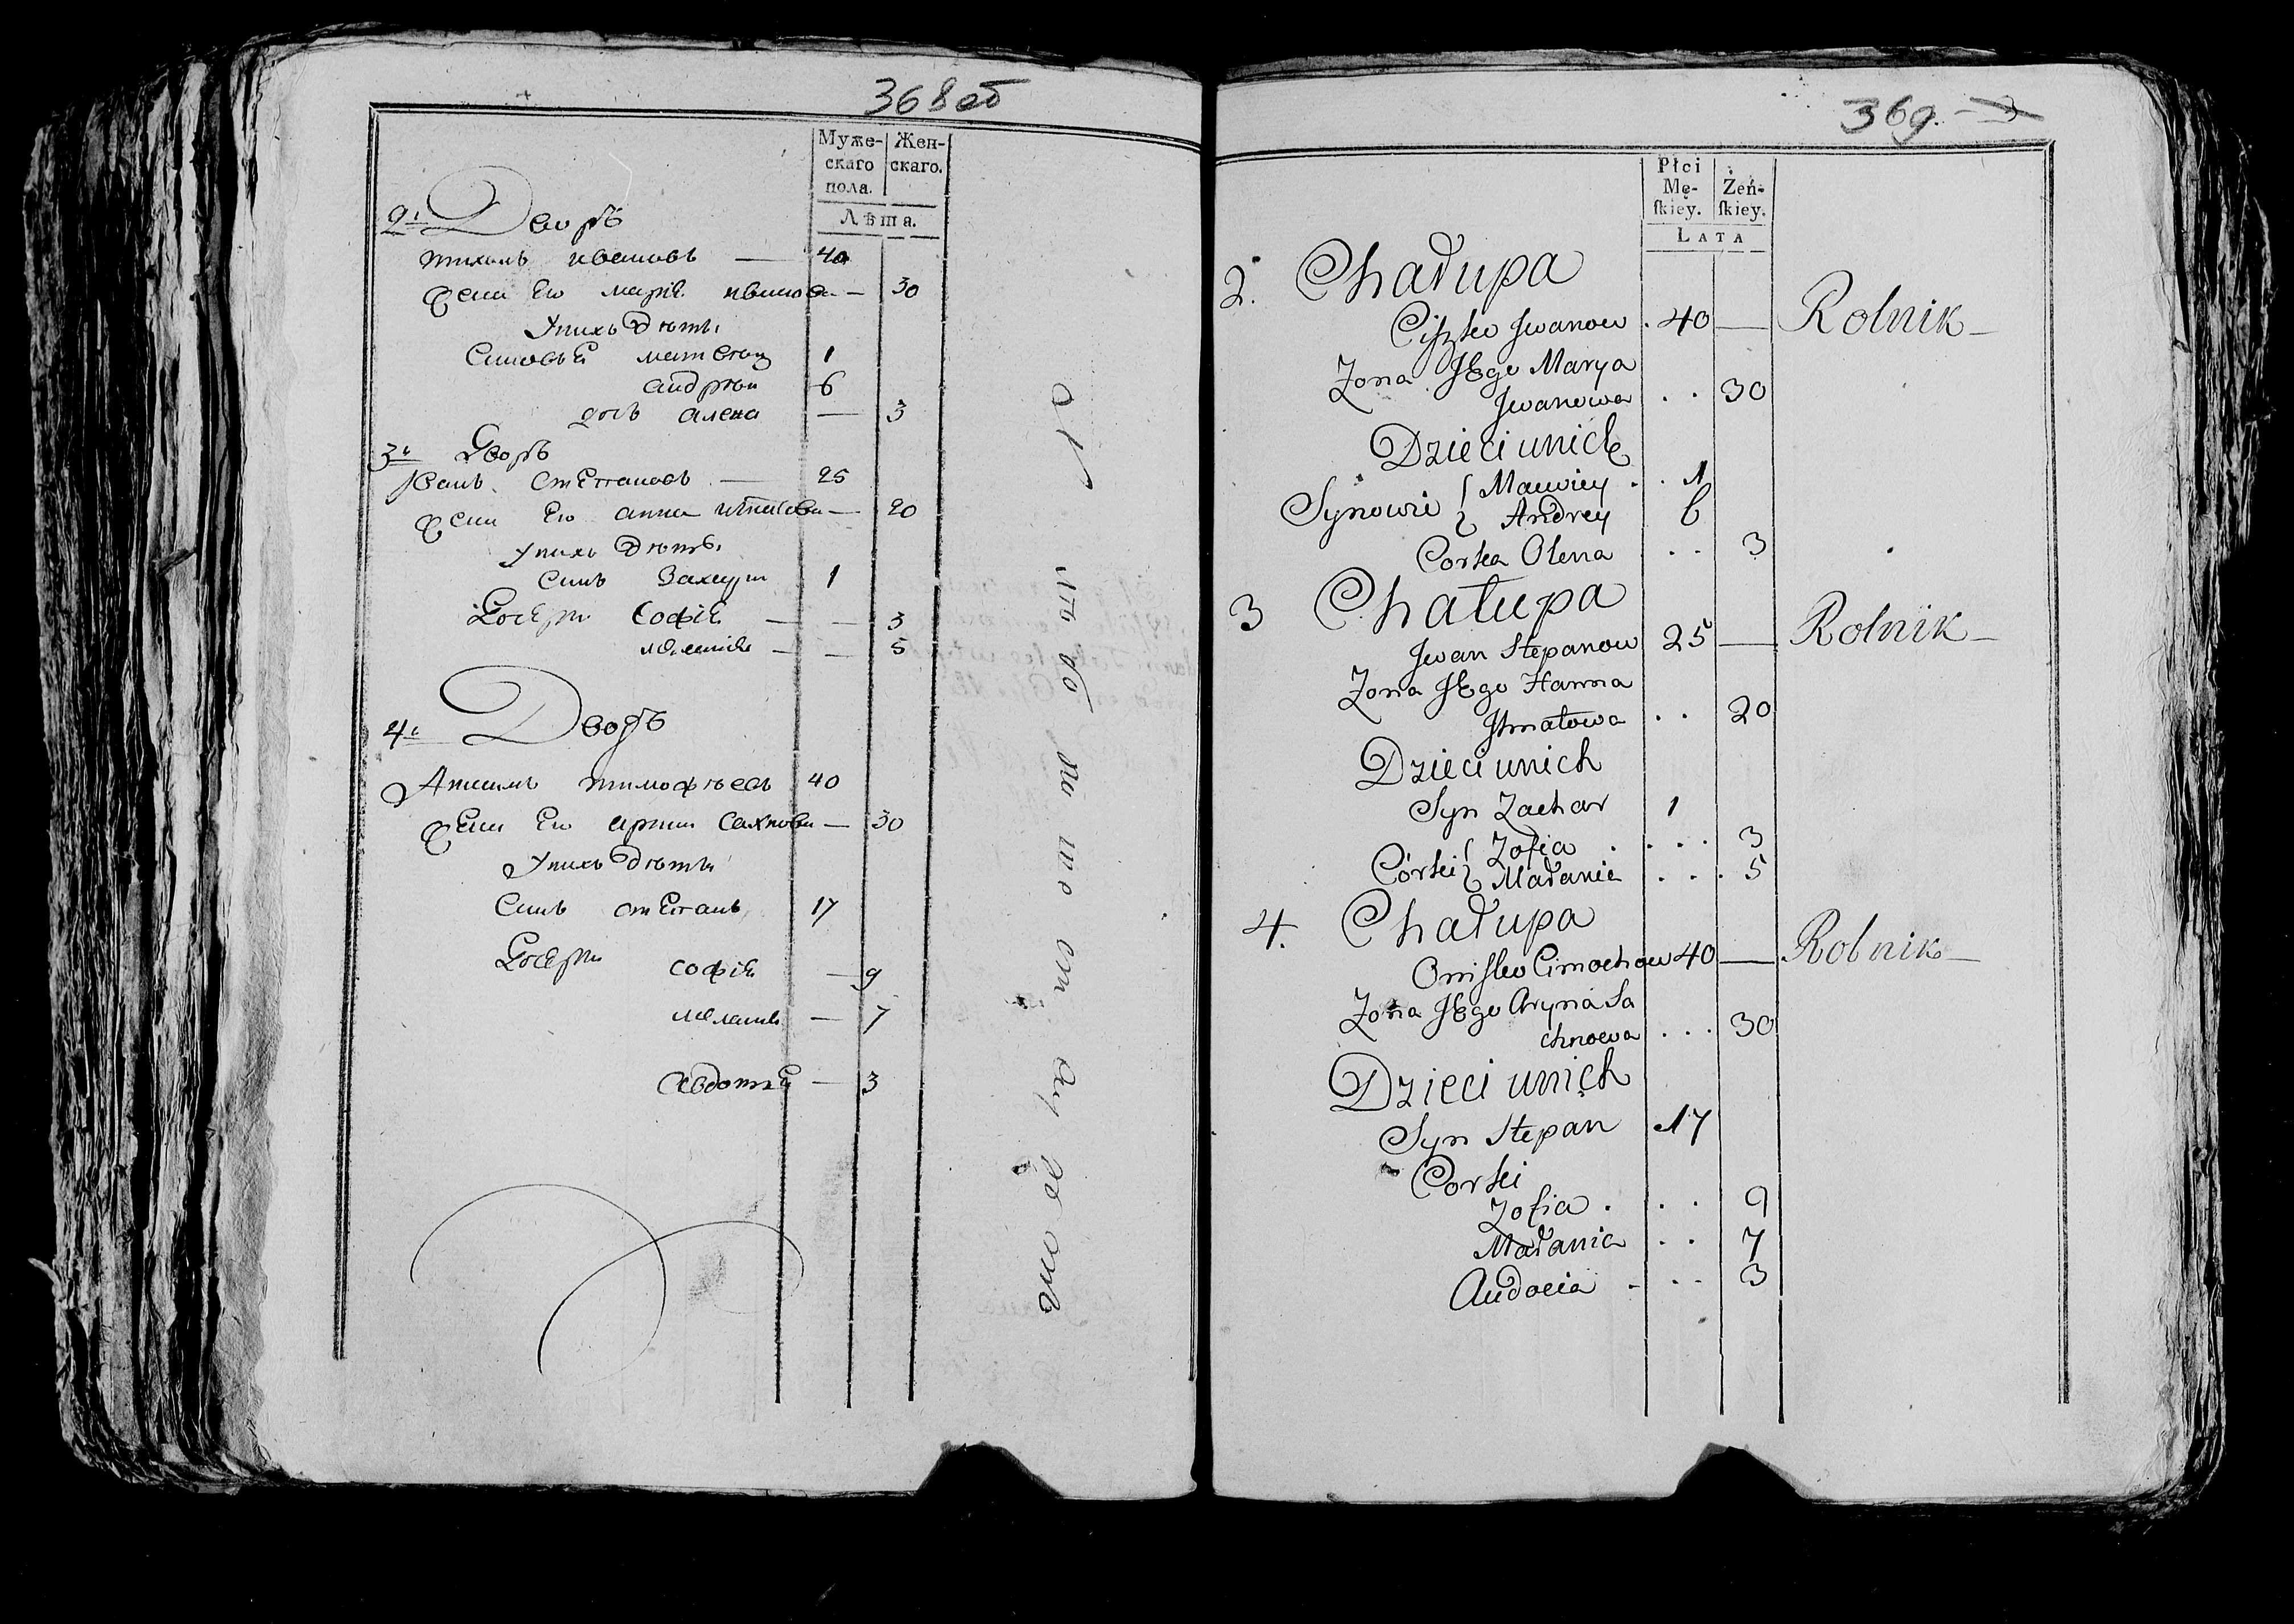 368 об
Муже-
скаго
пола.
Жен-
скаго.
Лѣта.
2й Дворъ
тихонъ ивановъ — 40
жена Его марiя иванова — 30
Унихъ дѣти
Синовья матвей 1
андрѣй 6
дочь алена — 3
3й Дворъ
Иванъ степановъ — 25
жена Его анна — 20
Унихъ дѣти
Синъ Захаръ 1
Дочери Софiя — — 3
меланья — — 5
4й Дворъ
Анисимъ тимофѣевъ 40
жена Его арина Сахнова — 30
Унихъ дѣти
Синъ степанъ 17
Дочери софiя — 9
меланья — 7
Авдотья — 3
369.
Płci
Mę-
ſkiey.
Żeń-
ſkiey.
LATA
2. Chałupa
Ciszko Jwanow . 40 — Rolnik —
Zona JEgo Marya
Jwanowa . . 30
Dzieci unich
Synowie { Mawiey . . 1
Andrey 6
Corka Olena . . 3
3 Chałupa
Jwan Stepanow 25 — Rolnik —
Zona JEgo Hanna
Jhnatowa . . 20
Dzieci unich
Syn Zachar 1
Córki { Zofia . . . . 3
Małania . . . 5
4. Chałupa
Onisko Cimochow 40 — Rolnik —
Zona JEgo Aryna Sa
chnowa . . . 30
Dzieci unich
Syn Stepan 17
Corki
Zofia . . . 9
Małania . . 7
Audocia . . . 3